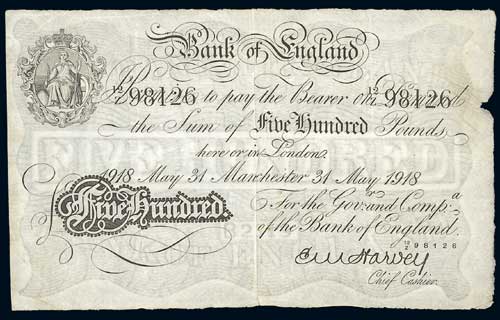 Bank of England
98126 to pay the Bearer on 98126
the Sum of Five Hundred Pounds
here or in London.
1918 May 31 Manchester 31 May 1918
Five Hundred
For the Gov.r and Comp.a
of the Bank of England.
98126
E M Harvey
Chief Cashier.